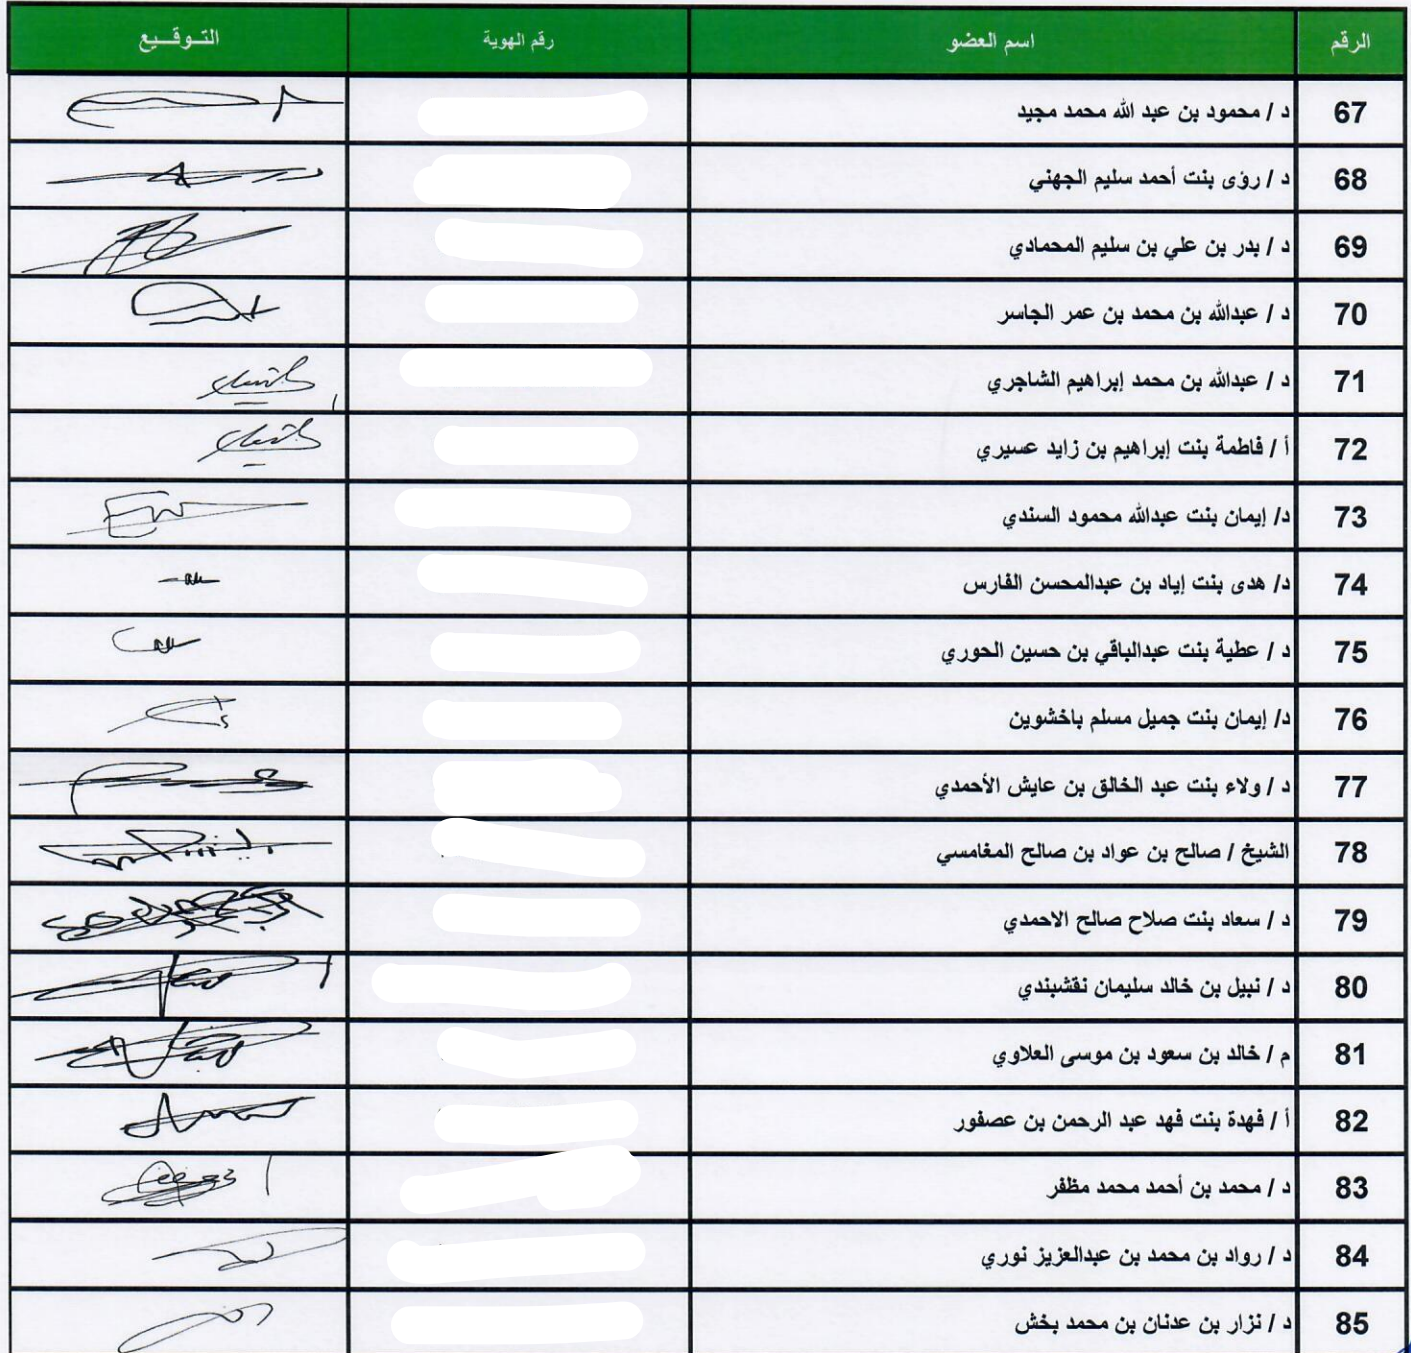 الرقم اسم العضو رقم الهوية التـوقـــيع
67 د / محمود بن عبد الله محمد مجيد
68 د / رؤى بنت أحمد سليم الجهني
69 د / بدر بن علي بن سليم المحمادي
70 د / عبدالله بن محمد بن عمر الجاسر
71 د / عبدالله بن محمد إبراهيم الشاجري
72 أ / فاطمة بنت إبراهيم بن زايد عسيري
73 د/ إيمان بنت عبدالله محمود السندي
74 د/ هدى بنت إياد بن عبدالمحسن الفارس
75 د / عطية بنت عبدالباقي بن حسين الحوري
76 د/ إيمان بنت جميل مسلم باخشوين
77 د / ولاء بنت عبد الخالق بن عايش الأحمدي
78 الشيخ / صالح بن عواد بن صالح المغامسي
79 د / سعاد بنت صلاح صالح الاحمدي
80 د / نبيل بن خالد سليمان نقشبندي
81 م / خالد بن سعود بن موسى العلاوي
82 أ / فهدة بنت فهد عبد الرحمن بن عصفور
83 د / محمد بن أحمد محمد مظفر
84 د / رواد بن محمد بن عبدالعزيز نوري
85 د / نزار بن عدنان بن محمد بخش